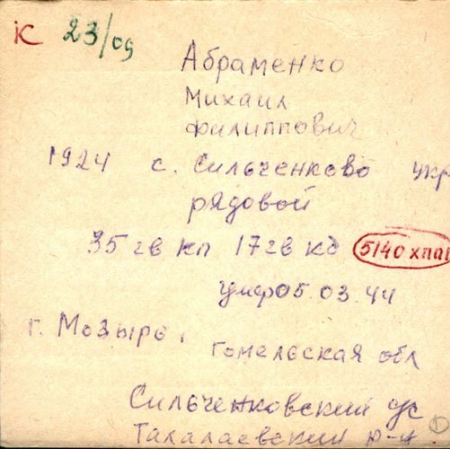 К 23/09
Абраменко
Михаил
Филиппович
1924 с. Сильченково укр
рядовой
35 гв кп 17 гв кд 5140 хппг
умер 05.03.44
г. Мозырь, Гомельская обл
Сильченковский с/с
Талалаевский р-н